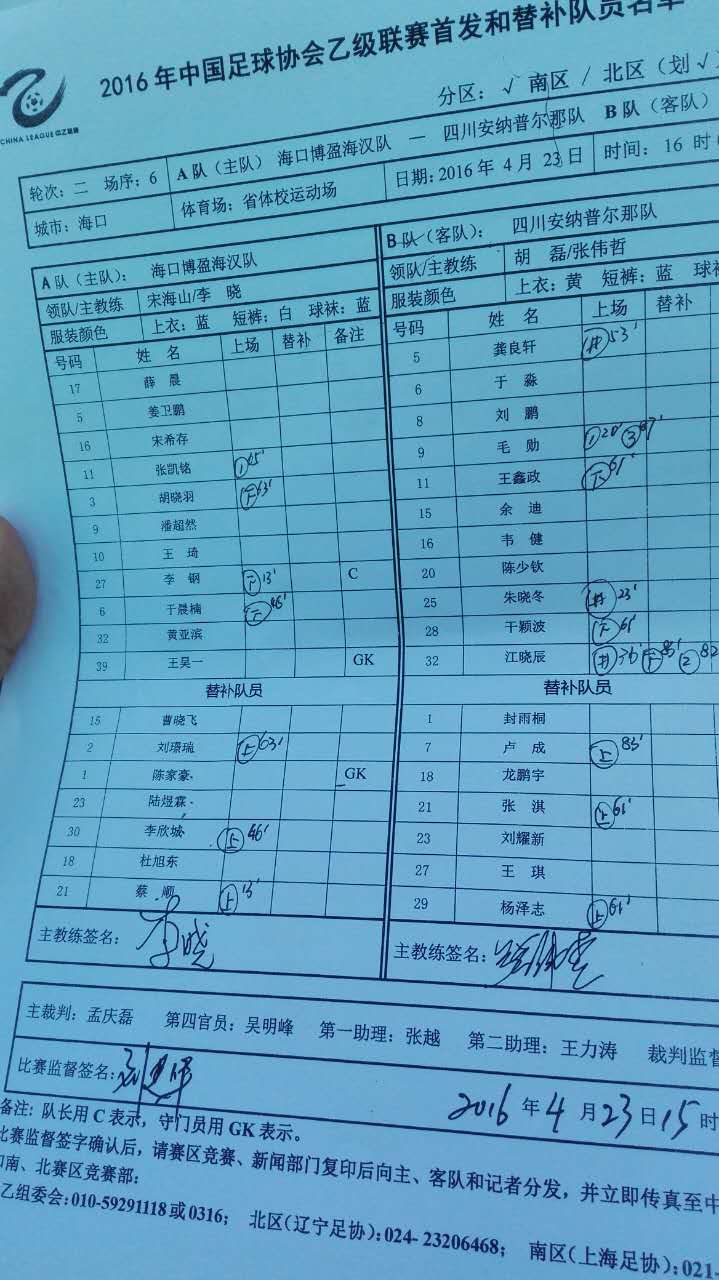 2016年中国足球协会乙级联赛首发和替补队员名单
CHINA LEAGUE 中乙联赛
分区：√ 南区 / 北区（划√
轮次：二 场序：6 A队（主队） 海口博盈海汉队 — 四川安纳普尔那队 B队（客队）
城市：海口 体育场：省体校运动场 日期：2016年 4月 23日 时间：16时
A队（主队）： 海口博盈海汉队 B队（客队）： 四川安纳普尔那队
领队/主教练 宋海山/李 晓 领队/主教练 胡 磊/张伟哲
服装颜色 上衣：蓝 短裤：白 球袜：蓝 服装颜色 上衣：黄 短裤：蓝 球袜
号码 姓 名 上场 替补 备注 号码 姓 名 上场 替补
17 薛 晨 5 龚良轩 53'
5 姜卫鹏 6 于 淼
16 宋希存 8 刘 鹏
11 张凯铭 ① 9 毛 勋 ① 20' ③
3 胡晓羽 下 63' 11 王鑫政 下 61'
9 潘超然 15 余 迪
10 王 琦 16 韦 健
27 李 钢 下 13' C 20 陈少钦
6 于晨楠 下 46' 25 朱晓冬 23'
32 黄亚滨 28 干颖波 下 61'
39 王昊一 GK 32 江晓辰 36' 下 85' ② 82
替补队员 替补队员
15 曹晓飞 1 封雨桐
2 刘璟瑞 上 63' 7 卢 成 上 85'
1 陈家豪 GK 18 龙鹏宇
23 陆煜霖 21 张 淇 上 61'
30 李欣城 上 46' 23 刘耀新
18 杜旭东 27 王 琪
21 蔡 顺 上 13' 29 杨泽志 上 61'
主教练签名： 李晓 主教练签名：
主裁判：孟庆磊 第四官员：吴明峰 第一助理：张越 第二助理：王力涛 裁判监督
比赛监督签名：
2016年4月23日15时
备注：队长用C表示，守门员用GK表示。
比赛监督签字确认后，请赛区竞赛、新闻部门复印后向主、客队和记者分发，并立即传真至中
和南、北赛区竞赛部：
乙组委会：010-59291118或0316； 北区（辽宁足协）：024- 23206468； 南区（上海足协）：021-